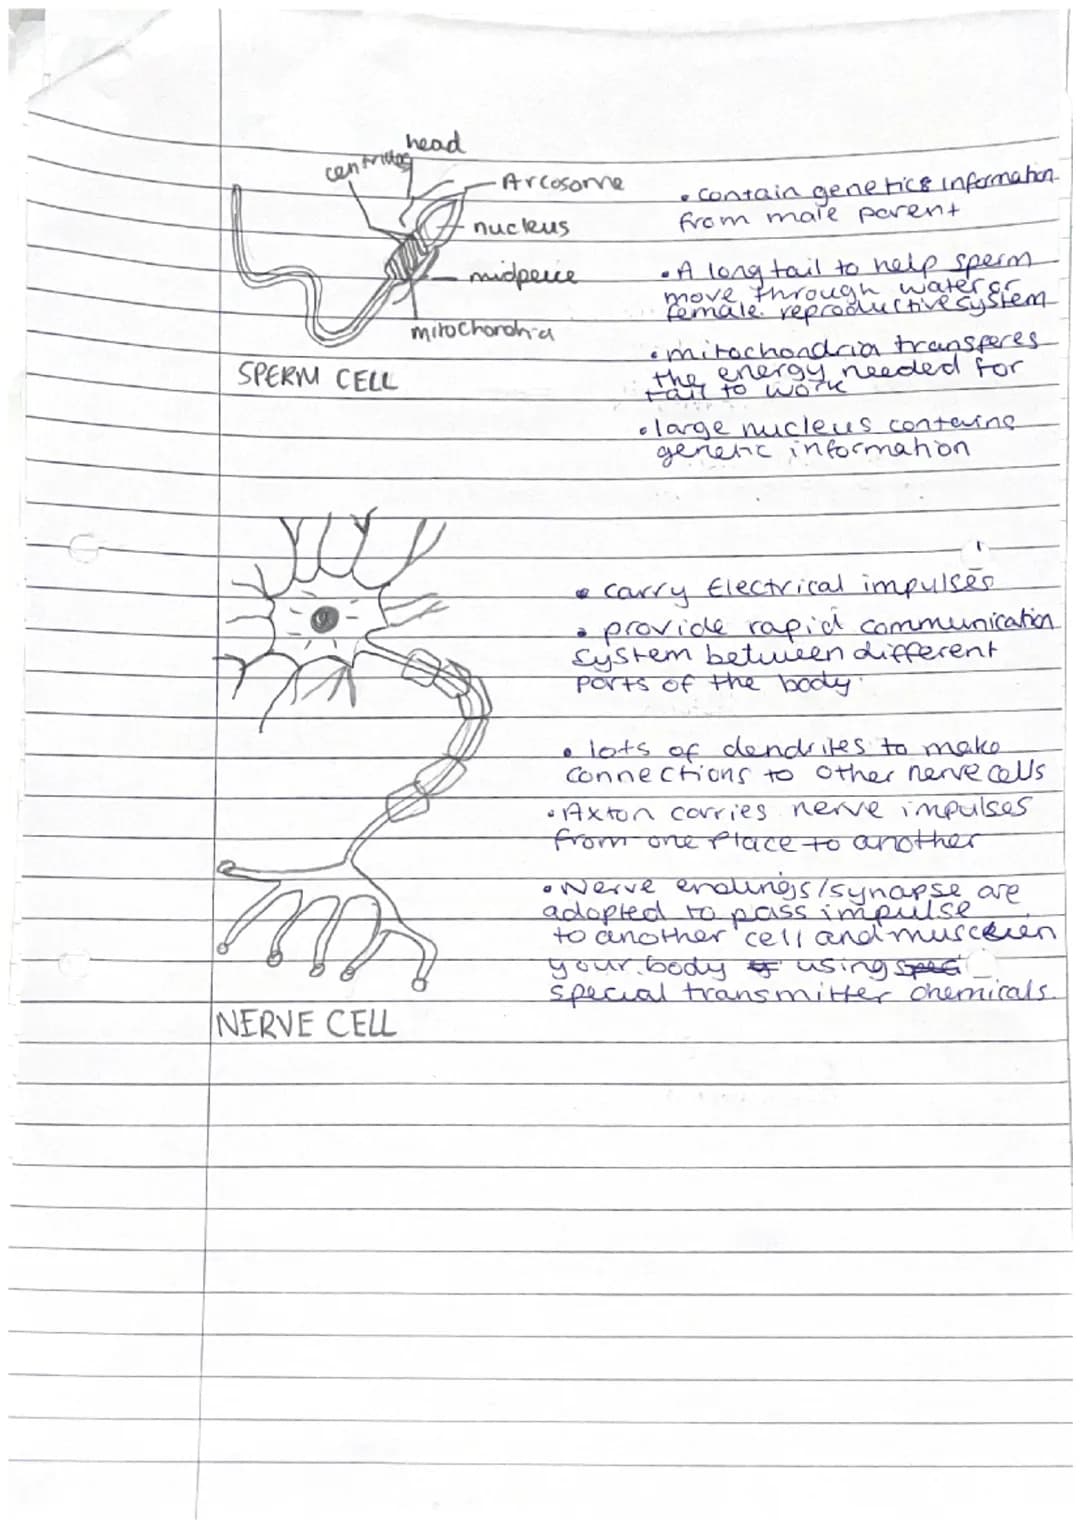 head
centrioles
Arcosome
nucleus
midpeice
mitochondria
SPERM CELL
• contain genetics information
from male parent
• A long tail to help sperm
move through water or
female reproductive system
• mitochondria transferes
the energy needed for
tail to work
• large nucleus contains
genetic information
• carry Electrical impulses
• provide rapid communication
system between different
parts of the body.
• lots of dendrites to make
connections to other nerve cells
• Axton carries nerve impulses
from one place to another
• Nerve endings/synapse are
adapted to pass impulse
to another cell and muscle in
your body using
special transmitter chemicals.
NERVE CELL